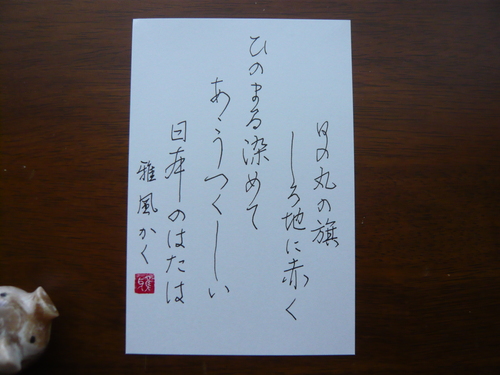 日の丸の旗
しろ地に赤く
ひのまる染めて
あゝうつくしい
日本のはたは
雅風かく